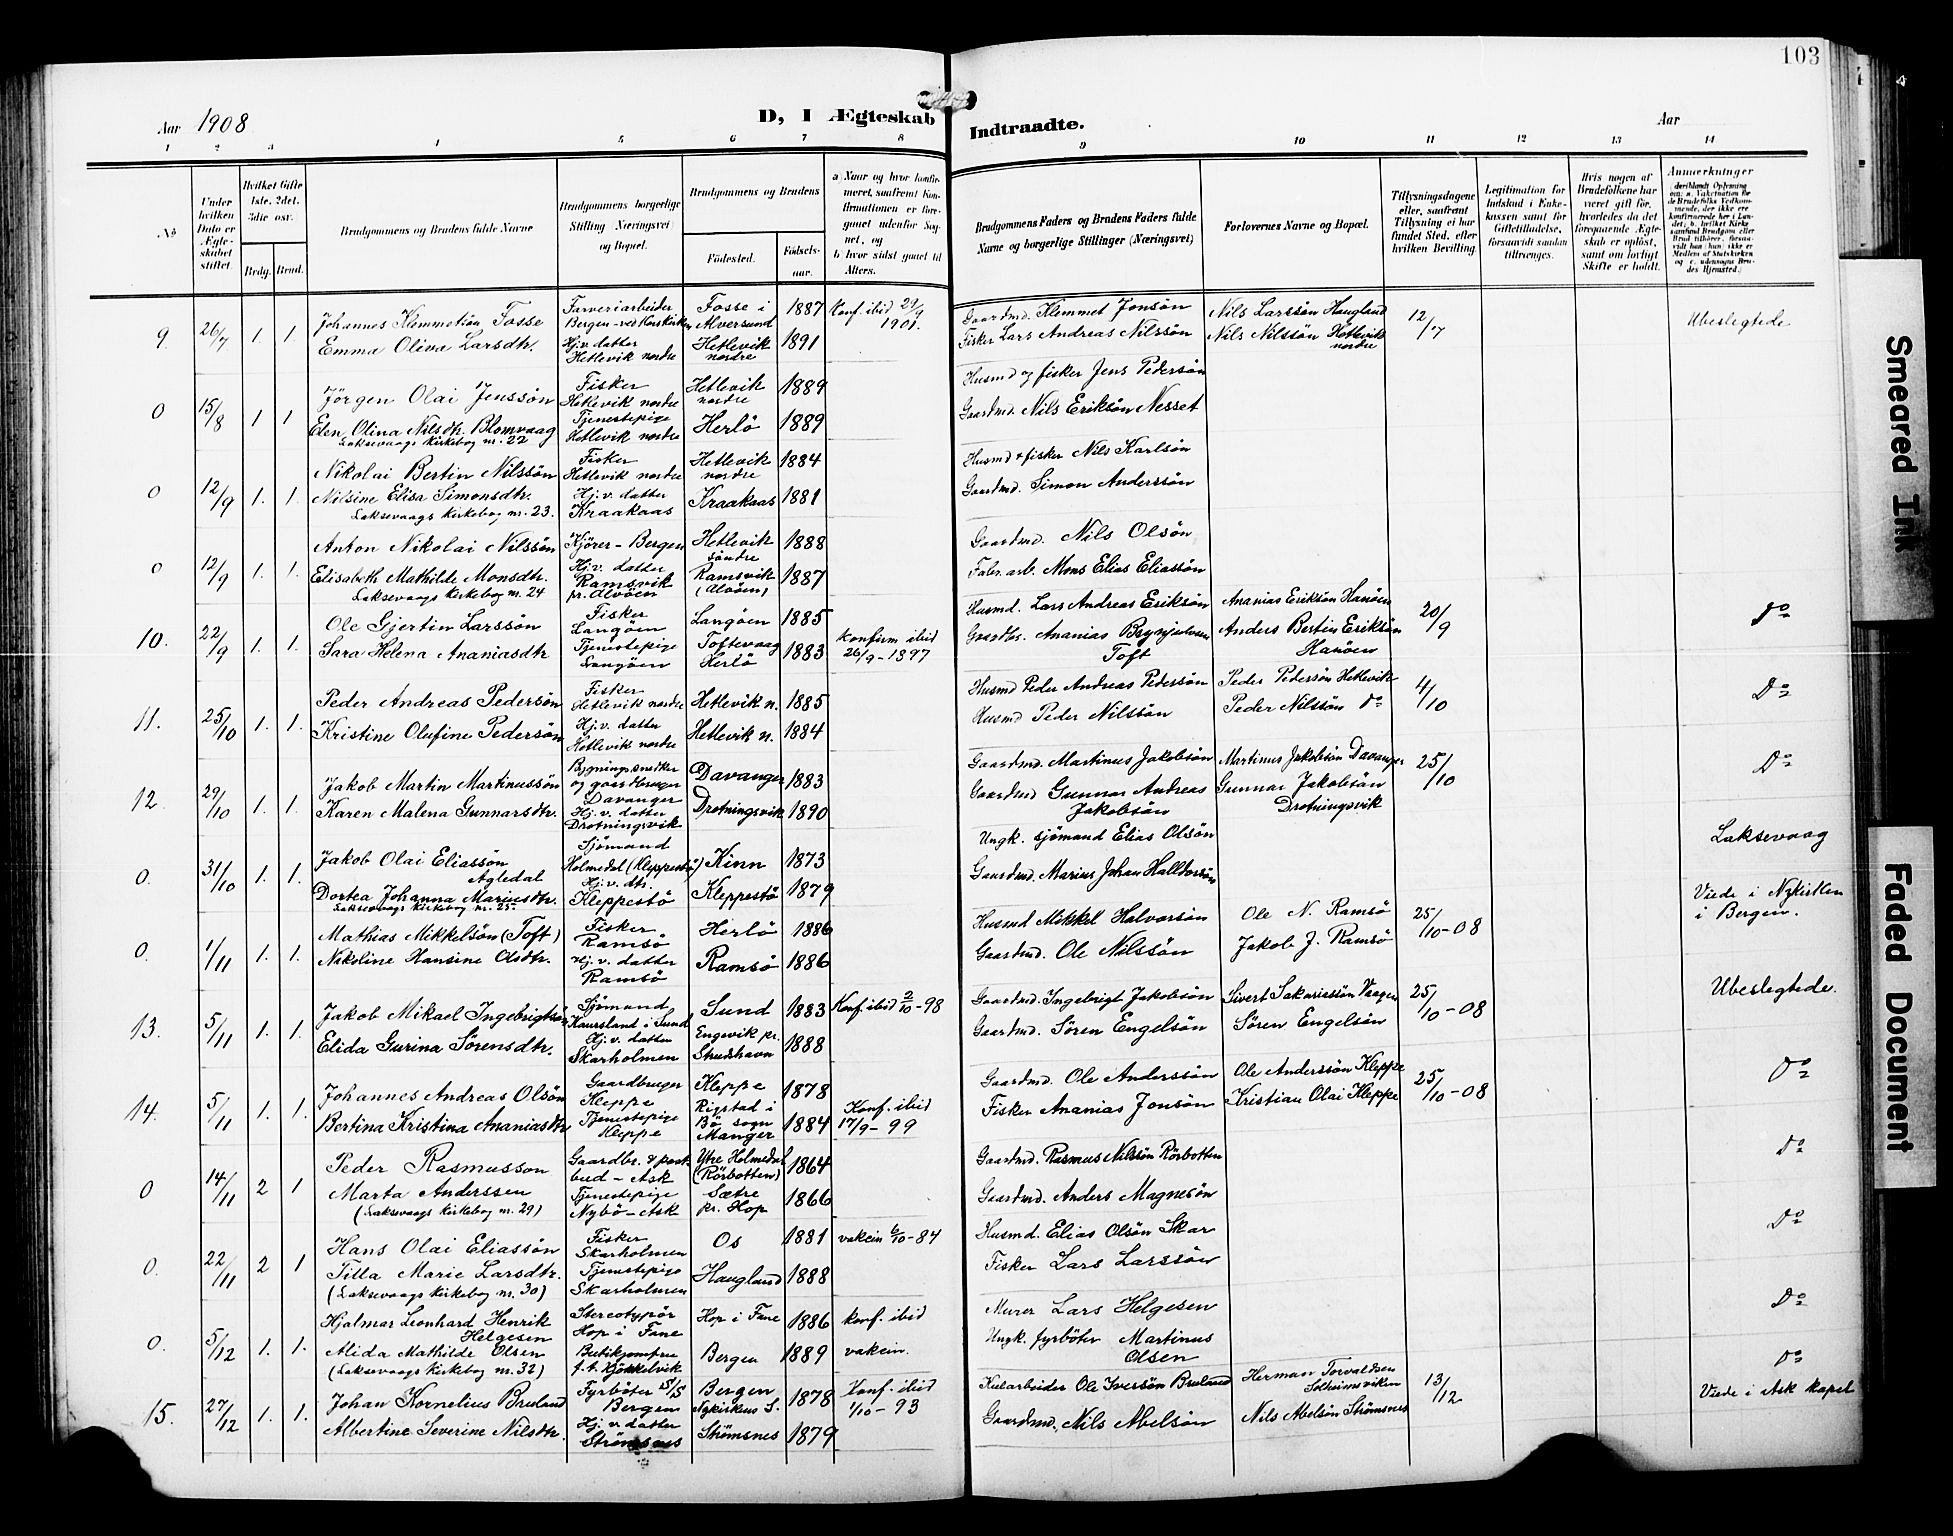 103
Aar 1908
D, I Ægteskab Indtraadte.
Aar
1 2 3 4 5 6 7 8 9 10 11 12 13 14
No
Under hvilken Dato er Ægteskabet stiftet.
Hvilket Gifte 1ste, 2det, 3die osv.
Brdg. Brud.
Brudgommens og Brudens fulde Navne
Brudgommens borgerlige Stilling (Næringsvei) og Bopæl.
Brudgommens og Brudens
Fødested.
Fødselsaar.
a) Naar og hvor konfirmeret, saafremt Konfirmationen er foregaaet udenfor Sognet, og b) hvor sidst gaaet til Alters.
Brudgommens Faders og Brudens Faders fulde Navne og borgerlige Stillinger (Næringsvei)
Forlovernes Navne og Bopæl.
Tillysningsdagene eller, saafremt Tillysning ei har fundet Sted, efter hvilken Bevilling.
Legitimation for Indskud i Enkekassen samt for Giftetilladelse, forsaavidt saadan tiltrænges.
Hvis nogen af Brudefolkene har været gift før, hvorledes da det foregaaende Ægteskab er opløst, samt om lovligt Skifte er holdt.
Anmærkninger
9. 26/7 1. 1 Johannes Klemmetsøn Fosse Farveriarbeider Bergen - ved Korskirken Fosse i Alversund 1887 Konf. ibid 29/9 1901. Gaardmd. Klemmet Jonsøn Nils Larssøn Haugland 12/7 Ubeslegtede
Emma Oliva Larsdtr. Hj. v. datter Hetlevik nordre Hetlevik nordre 1891 Fisker Lars Andreas Nilssøn Nils Nilssøn Hetlevik nordre
0 15/8 1 1 Jörgen Olai Jenssøn Fisker Hetlevik nordre Hetlevik nordre 1889 Husmd og fisker Jens Pedersøn
Elen Olina Nilsdtr. Blomvaag Tjenestepige Hetlevik nordre Herlö 1889 Gaardmd. Nils Eriksøn Nesset
Laksevaags Kirkebog nr. 22
0 12/9 1. 1. Nikolai Bertin Nilssøn Fisker Hetlevik nordre Hetlevik nordre 1884 Husmd + fisker Nils Karlsøn
Nilsine Elisa Simonsdtr. Hj. v. datter Kraakaas Kraakaas 1881 Gaardmd. Simon Anderssøn
Laksevaags Kirkebog nr. 23.
0 12/9 1. 1. Anton Nikolai Nilssøn Kjörer - Bergen Hetlevik söndre 1888 Gaardmd. Nils Olsøn
Elisabeth Mathilde Monsdtr. Hj. v. datter Ramsvik pr. Alvöen Ramsvik (Alvöen) 1887 Fabr. arb. Mons Elias Eliassøn
Laksevaags Kirkebog nr. 24
10. 22/9 1. 1. Ole Gjertin Larssøn Fisker Langöen Langöen 1885 Husmd. Lars Andreas Eriksøn Ananias Eriksøn Hanöen 20/9 Do
Sara Helena Ananiasdtr Tjenestepige Langöen Toftevaag Herlö 1883 Konfirm ibid 26/9 - 1897 Gaardbr. Ananias Brynjulvsen Toft Anders Bertin Eriksøn Hanöen
11. 25/10 1. 1. Peder Andreas Pedersøn Fisker Hetlevik nordre Hetlevik n. 1885 Husmd Peder Andreas Pedersøn Peder Pedersøn Hetlevik 4/10 Do
Kristine Olufine Pedersøn Hj. v. datter Hetlevik nordre Hetlevik n. 1884 Husmd Peder Nilssøn Peder Nilssøn Do
12. 29/10 1. 1. Jakob Martin Martinussøn Bygningssnedker og gaardbruger Davanger Davanger 1883 Gaardmd. Martinus Jakobsøn Martinus Jakobsøn Davanger 25/10 Do
Karen Malena Gunnarsdtr. Hj. v. datter Drotningsvik Drotningsvik 1890 Gaardmd Gunnar Andreas Jakobsøn Gunnar Jakobsøn Drotningsvik
0. 31/10 1. 1. Jakob Olai Eliassøn Agledal Sjömand Holmedal (Kleppestö) Kinn 1873 Ungk. sjömand Elias Olsøn Laksevaag
Dortea Johanna Mariusdtr. Hj. v. dtr. Kleppestö Kleppestö 1879 Gaardmd. Marius Johan Halldorsøn
Laksevaags Kirkebog nr. 25.
0. 1/11 1. 1. Mathias Mikkelsøn (Toft) Fisker Ramsö Herlö 1886 Husmd Mikkel Halvorsøn Ole N. Ramsö 25/10 - 08 Viede i Nykirken i Bergen.
Nikoline Hansine Olsdtr. Hj. v. datter Ramsö Ramsö 1886 Gaardmd. Ole Nilssøn Jakob J. Ramsö
13. 5/11 1. 1. Jakob Mikael Ingebrigtsøn Sjömand Kaursland i Sund Sund 1883 Konf. ibid 2/10 - 98 Gaardmd. Ingebrigt Jakobsøn Sivert Sakariassøn Vaagen 25/10 - 08 Ubeslegtede.
Elida Gurina Sörensdtr. Hj. v. datter Skarholmen Engevik pr. Strudshavn 1888 Gaardmd. Sören Engelsøn Sören Engelsøn
14. 5/11 1. 1. Johannes Andreas Olsøn Gaardbruger Kleppe Kleppe 1878 Gaardmd. Ole Anderssøn Ole Anderssøn Kleppe 25/10 - 08 Do
Bertina Kristina Ananiasdtr Tjenestepige Kleppe Rigstad i Bö sogn Manger 1884 Konf. ibid 17/9 - 99 Fisker Ananias Jonsøn Kristian Olai Kleppe
0 14/11 2 1 Peder Rasmusson Gaardbr. & postbud - Ask Ytre Holmedal (Rörbotten) 1864 Gaardmd. Rasmus Nilssøn Rörbotten Do
Marta Anderssen Tjenestepige Nybö - Ask Sætre pr. Hop 1866 Gaardmd. Anders Magnesøn
(Laksevaags Kirkebog nr. 29)
0. 22/11 2 1 Hans Olai Eliassøn Fisker Skarholmen Os 1881 vakcin 6/10 - 84 Husmd. Elias Olsøn Skar Do
Tilla Marie Larsdtr. Tjenestepige Skarholmen Haugland 1888 Fisker Lars Larssøn
(Laksevaags Kirkebog nr. 30)
0. 5/12 1. 1. Hjalmar Leonhard Henrik Helgesen Stereotypör Hop i Fane Hop i Fane 1886 konf. ibid Murer Lars Helgesen Do
Alida Mathilde Olsen Butikjomfru f. t. Kjökkelvik Bergen 1889 vakcin. Ungk. fyrböter Martinus Olsen
(Laksevaags Kirkebog nr. 32)
15. 27/12 1. 1. Johan Kornelius Bruland Fyrböter Bergen Bergen Nykirkens S. 1878 Konf. ibid 1/10 - 93 Kularbeider Ole Iverssøn Bruland Herman Torvaldsen Solheimsviken 13/12 Do
Albertine Severine Nilsdtr. Hj. v. datter Strömsnes Strömsnes 1879 Gaardmd. Nils Abelsøn Nils Abelsøn Strömsnes Viede i Ask kapel
Smeared Ink
Faded Document